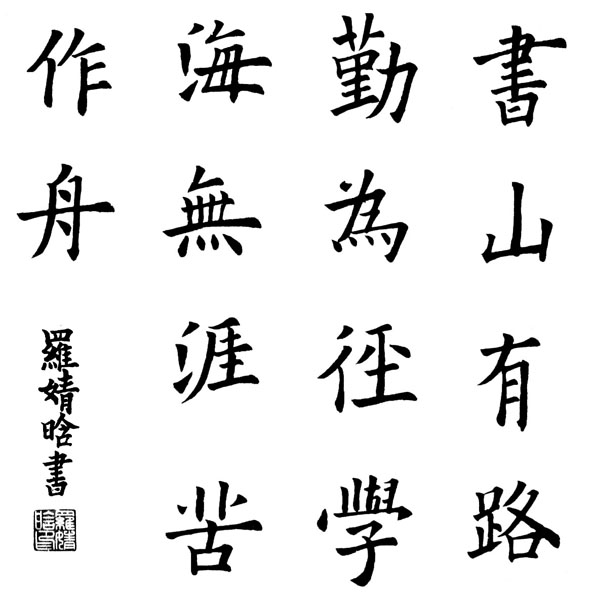 書山有路
勤為徑學
海無涯苦
作舟
羅婧晗書
羅婧晗印